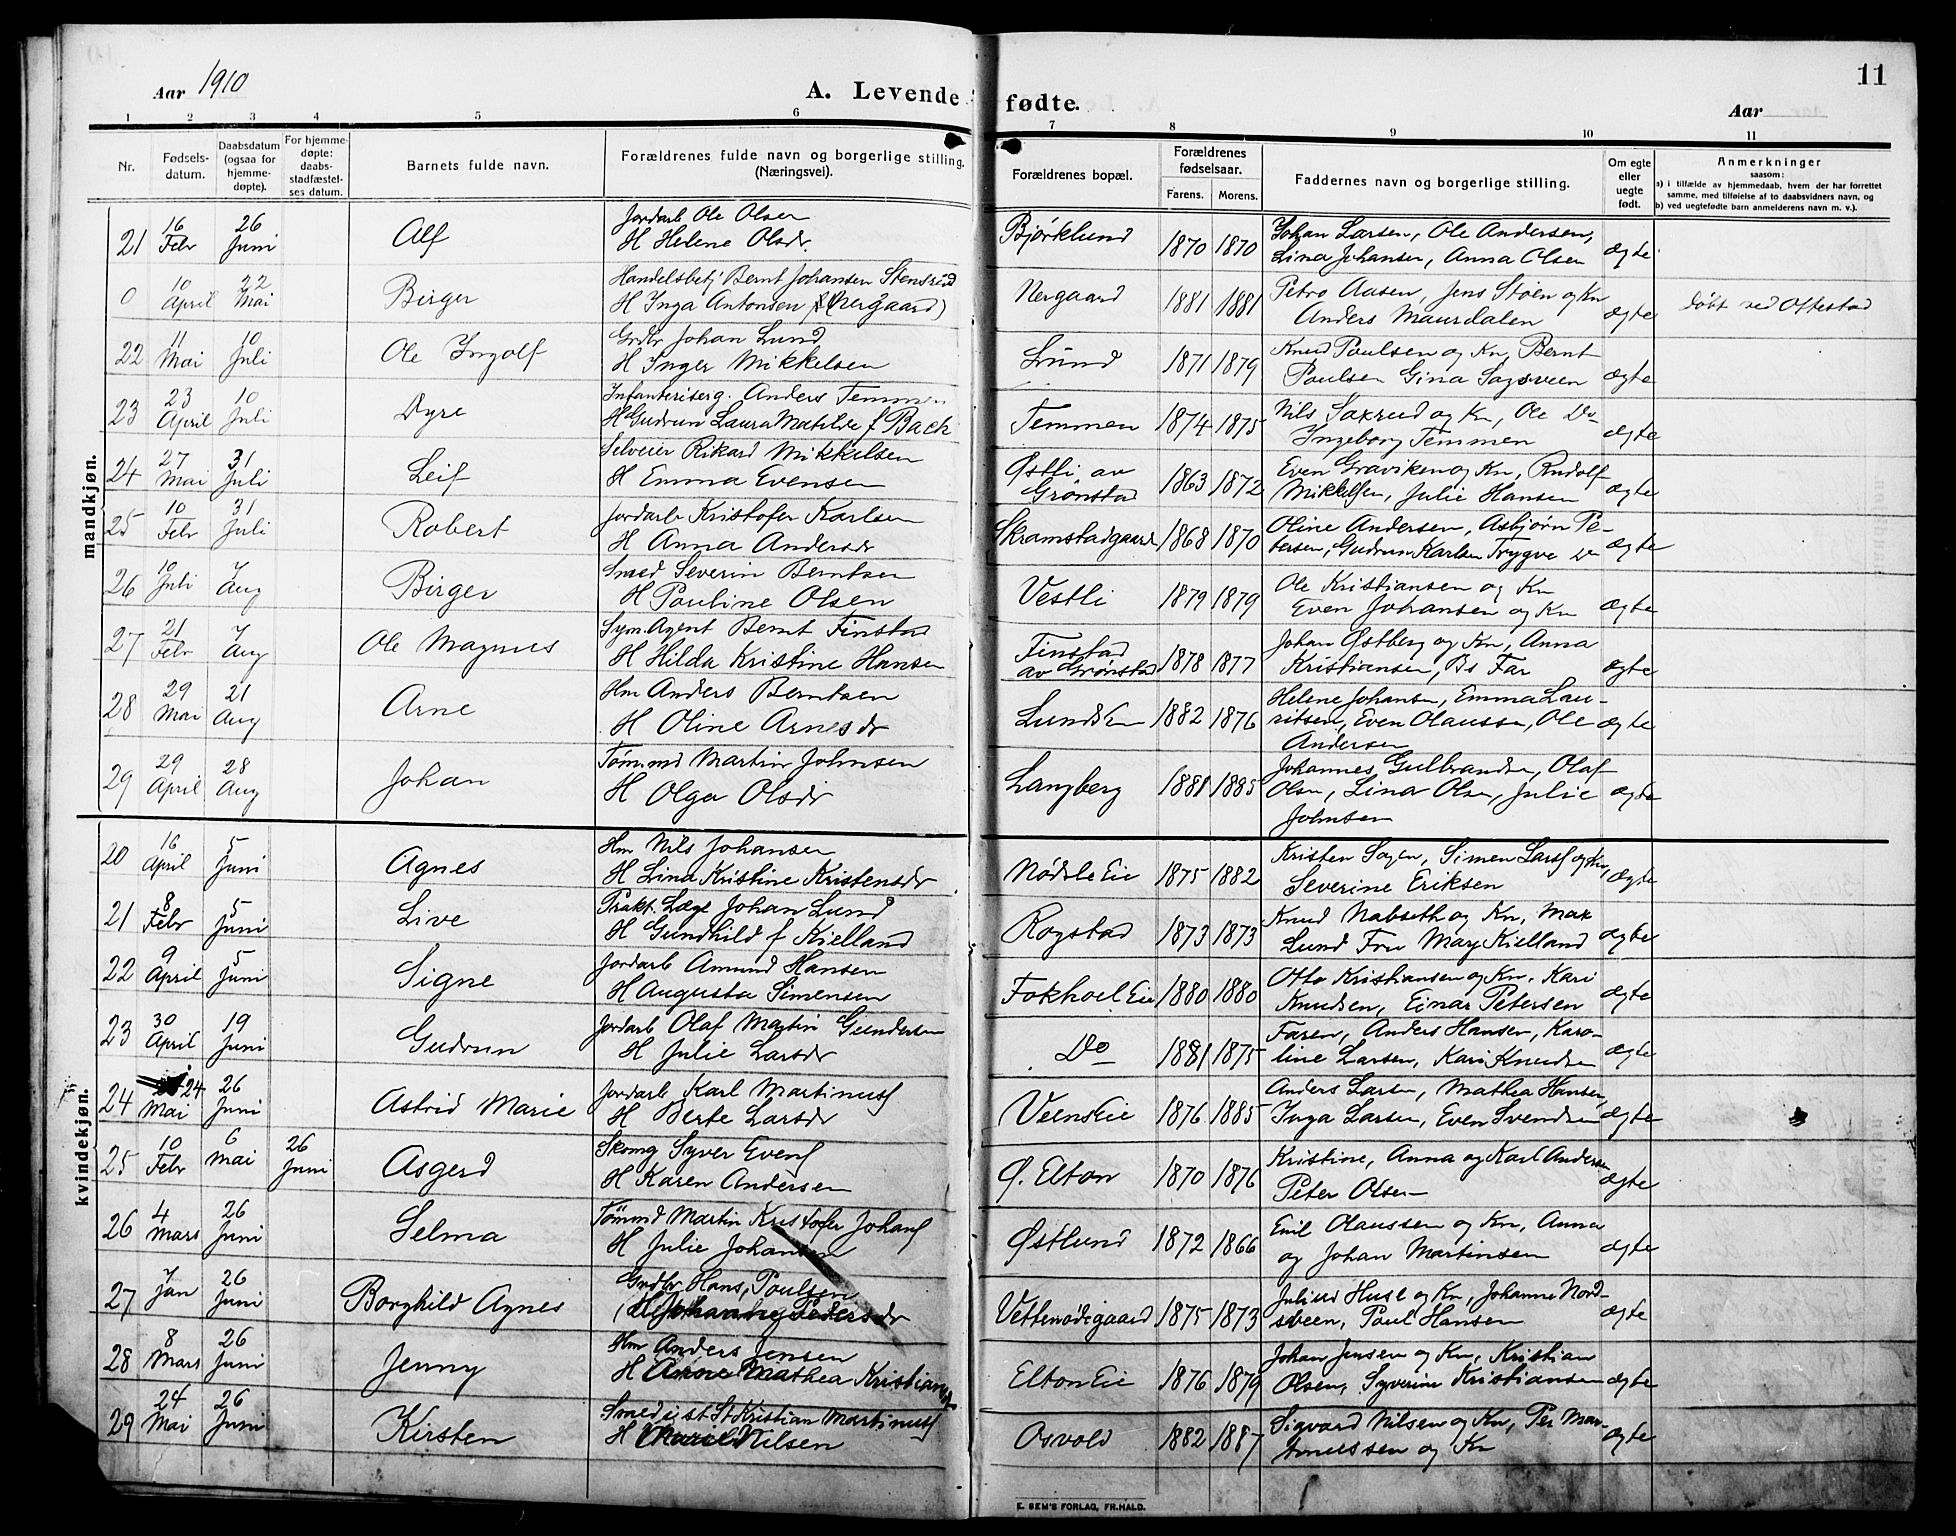 11
Aar 1910
A. Levende fødte.
Aar
1 2 3 4 5 6 7 8 9 10 11
Nr.
Fødselsdatum.
Daabsdatum (ogsaa for hjemmedøpte).
For hjemmedøpte: daabsstadfæstelses datum.
Barnets fulde navn.
Forældrenes fulde navn og borgerlige stilling. (Næringsvei).
Forældrenes bopæl.
Forældrenes fødselsaar.
Farens. Morens.
Faddernes navn og borgerlige stilling.
Om egte eller uegte født.
Anmerkninger
saasom:
a) i tilfælde av hjemmedaab, hvem der har forrettet samme, med tilføielse av to daabsvidners navn, og
b) ved uegtefødte barn anmelderens navn m. v.).
mandkjøn.
21 16 Febr 26 Juni Alf Jordarb Ole Olsen
H Helene Olsdr. Bjørklund 1870 1870 Johan Larsen, Ole Andersen,
Lina Johansen, Anna Olsen ægte
0 10 April 22 Mai Birger Handelsbetj Bernt Johansen Stensrud
H Inga Antonsen (Nergaard) Nergaard 1881 1881 Petro Aasen, Jens Støen og Kn
Anders Maurdalen ægte døbt ved Ottestad
22 11 Mai 10 Juli Ole Ingolf Grdbr Johan Lund
H Inger Mikkelsen Lund 1871 1879 Knud Poulsen og Kn, Bernt
Poulsen Gina Sagsveen ægte
23 23 April 10 Juli Dyre Infanteriserg. Anders Temmen
H Gudrun Laura Matilde f Bach Temmen 1874 1875 Nils Saxrud og Kn, Ole Do
Ingeborg Temmen ægte
24 27 Mai 31 Juli Leif Selveier Rikard Mikkelsen
H Emma Evensen Østli av Grønstad 1863 1872 Even Graviken og Kn, Rudolf
Mikkelsen, Julie Hansen ægte
25 10 Febr 31 Juli Robert Jordarb Kristofer Karlsen
H Anna Andersdr Skramstadgaard 1868 1870 Oline Andersen, Asbjørn Pe-
tersen, Gudrun Karlsen Trygve Do ægte
26 10 Juli 7 Aug Birger Smed Severin Berntsen
H Pauline Olsen Vestli 1879 1879 Ole Kristiansen og Kn
Even Johansen og Kn ægte
27 21 Febr 7 Aug Ole Magnus Sym. Agent Bernt Finstad
H Hilda Kristine Hansen Finstad av Grønstad 1878 1877 Johan Østberg og Kn, Anna
Kristiansen, Bs Far ægte
28 29 Mai 21 Aug Arne Hm Anders Berntsen
H Oline Arnesdr 1882 1876 Helene Johansen, Emma Lau-
ritsen, Even Olaussen, Ole
Andersen ægte
29 29 April 28 Aug Johan Tømmd Martin Johnsen
H Olga Olsdr Langberg 1881 1885 Johannes Gulbrandsen, Olaf
Olsen, Lina Olsen, Julie
Johnsen ægte
kvindekjøn.
20 16 April 5 Juni Agnes Hm Nils Johansen
H Lina Kristine Kristensdr Nødsle Eie 1875 1882 Kristen Sagen, Simen Larsf og Kn,
Severine Eriksen ægte
21 8 Febr 5 Juni Live Prakt. Læge Johan Lund
H Gundhild f Kielland Rogstad 1873 1873 Knud Nabseth og Kn, Max
Lund Fru Mary Kielland ægte
22 9 April 5 Juni Signe Jordarb Amund Hansen
H Augusta Simensen Fokhoel Eie 1880 1880 Otto Kristiansen og Kn. Kari
Knudsen, Einar Petersen ægte
23 30 April 19 Juni Gudrun Jordarb Olaf Martin Gundersen
H Julie Larsdr Do 1881 1875 Faren, Anders Hansen, Karo-
line Larsen, Kari Knudsen ægte
24 24 Mai 26 Juni Astrid Marie Jordarb Karl Martinusf
H Berte Larsdr Veens Eie 1876 1885 Anders Larsen, Mathea Hansen,
Inga Larsen, Even Svendsen ægte
25 10 Febr 6 Mai 26 Juni Asgerd Skomg Syver Evensf
H Karen Andersen Ø. Elton 1870 1876 Kristine, Anna og Karl Andersen
Peter Olsen ægte
26 4 Mars 26 Juni Selma Tømmd Martin Kristofer Johansf
H Julie Johansen Østlund 1872 1866 Emil Olaussen og Kn, Anna
og Johan Martinsen ægte
27 7 Jan 26 Juni Borghild Agnes Grdbr Hans Poulsen
H Johanne Pedersdr Vettenødegaard 1875 1873 Julius Huse og Kn, Johanne Nord-
sveen, Poul Hansen ægte
28 8 Mars 26 Juni Jenny Hm Anders Jensen
H Anne Mathea Kristiansdr Elton Eie 1876 1879 Johan Jensen og Kn, Kristian
Olsen, Syverine Kristiansen ægte
29 24 Mai 26 Juni Kirsten Smed Kristian Martinusf
H Marie Nilsen Osvold 1882 1887 Sigvard Nilsen og Kn, Per Mar-
tinussen og Kn ægte
E. SEM'S FORLAG, FR.HALD.